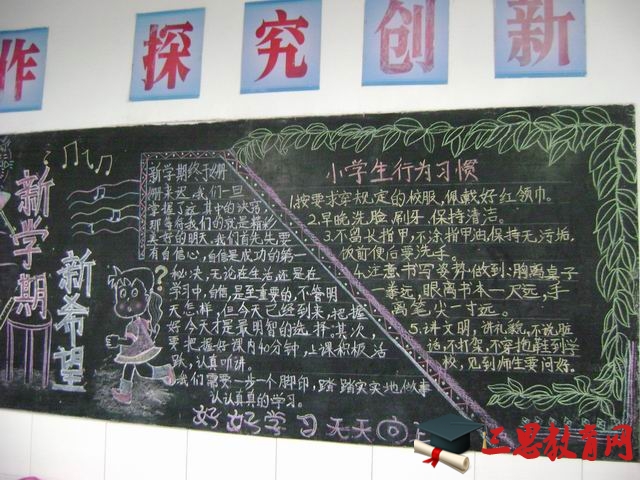 作 探 究 创 新
新学期
新希望
新学期终于姗
姗来迟,我们一旦
掌握了这其中的诀窍,
那等待我们的就是精彩
美好的明天,我们首先要
有自信心,自信是成功的第一
秘决,无论在生活还是在
学习中,自信是至重要的,不管明
天怎样,但今天已经到来,把握
好今天才是最明智的选择。其次,
要把握好课内40分钟,上课积极活
跃,认真听讲。
我们需要一步一个脚印,踏踏实实地做事
认认真真的学习。
好好学习天天向上
小学生行为习惯
1.按要求穿规定的校服,佩戴好红领巾。
2.早晚洗脸,刷牙,保持清洁。
3.不留长指甲,不涂指甲油,保持无污垢,
饭前便后要洗手。
4.注意书写姿势,做到:胸离桌子
眼离书本一尺远,手
离笔尖一寸远。
5.讲文明,讲礼貌,不说脏
话,不打架,不穿拖鞋到学
校,见到师生要问好。
三思教育网